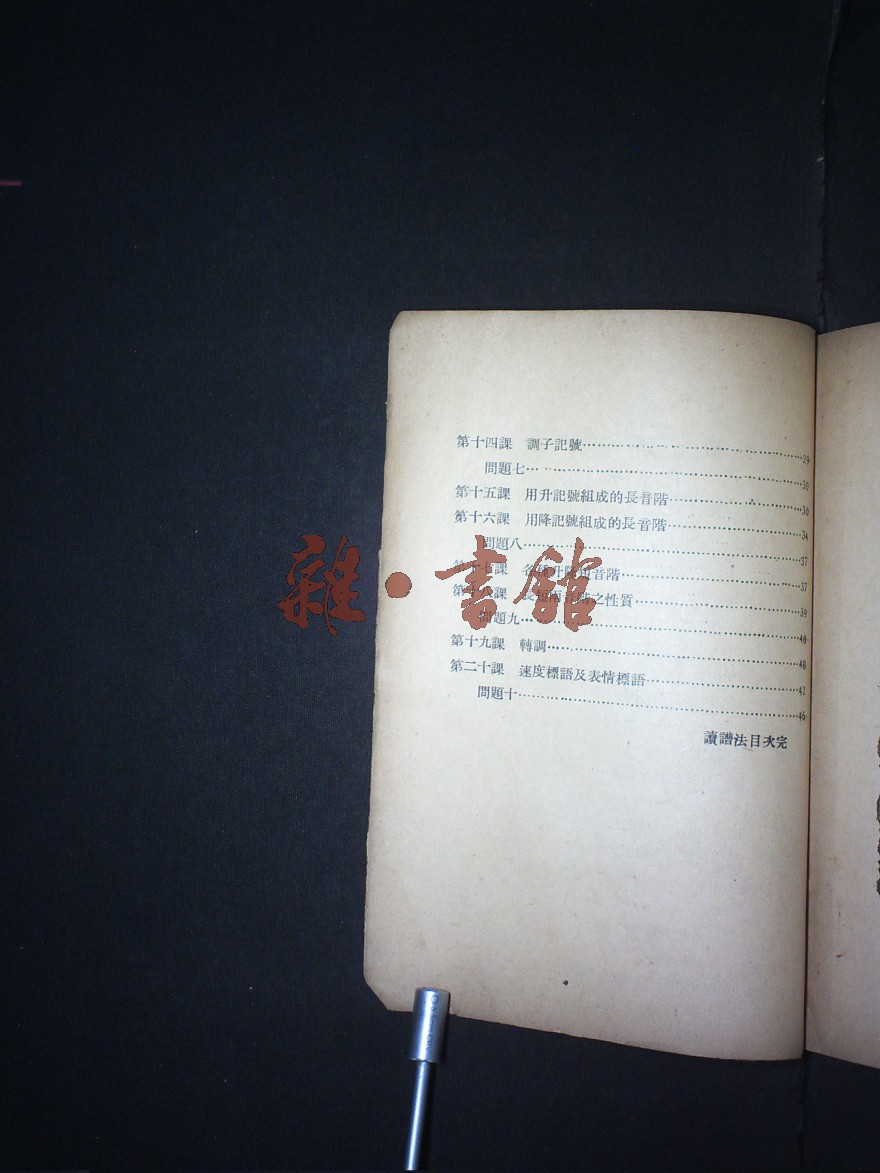 第十四課 調子記號……29
問題七……30
第十五課 用升記號組成的長音階……30
第十六課 用降記號組成的長音階……34
問題八……37
第十七課 各種升降短音階……37
第十八課 長短兩音階之性質……39
問題九……40
第十九課 轉調……40
第二十課 速度標語及表情標語……42
問題十……46
讀譜法目次完
雜·書館